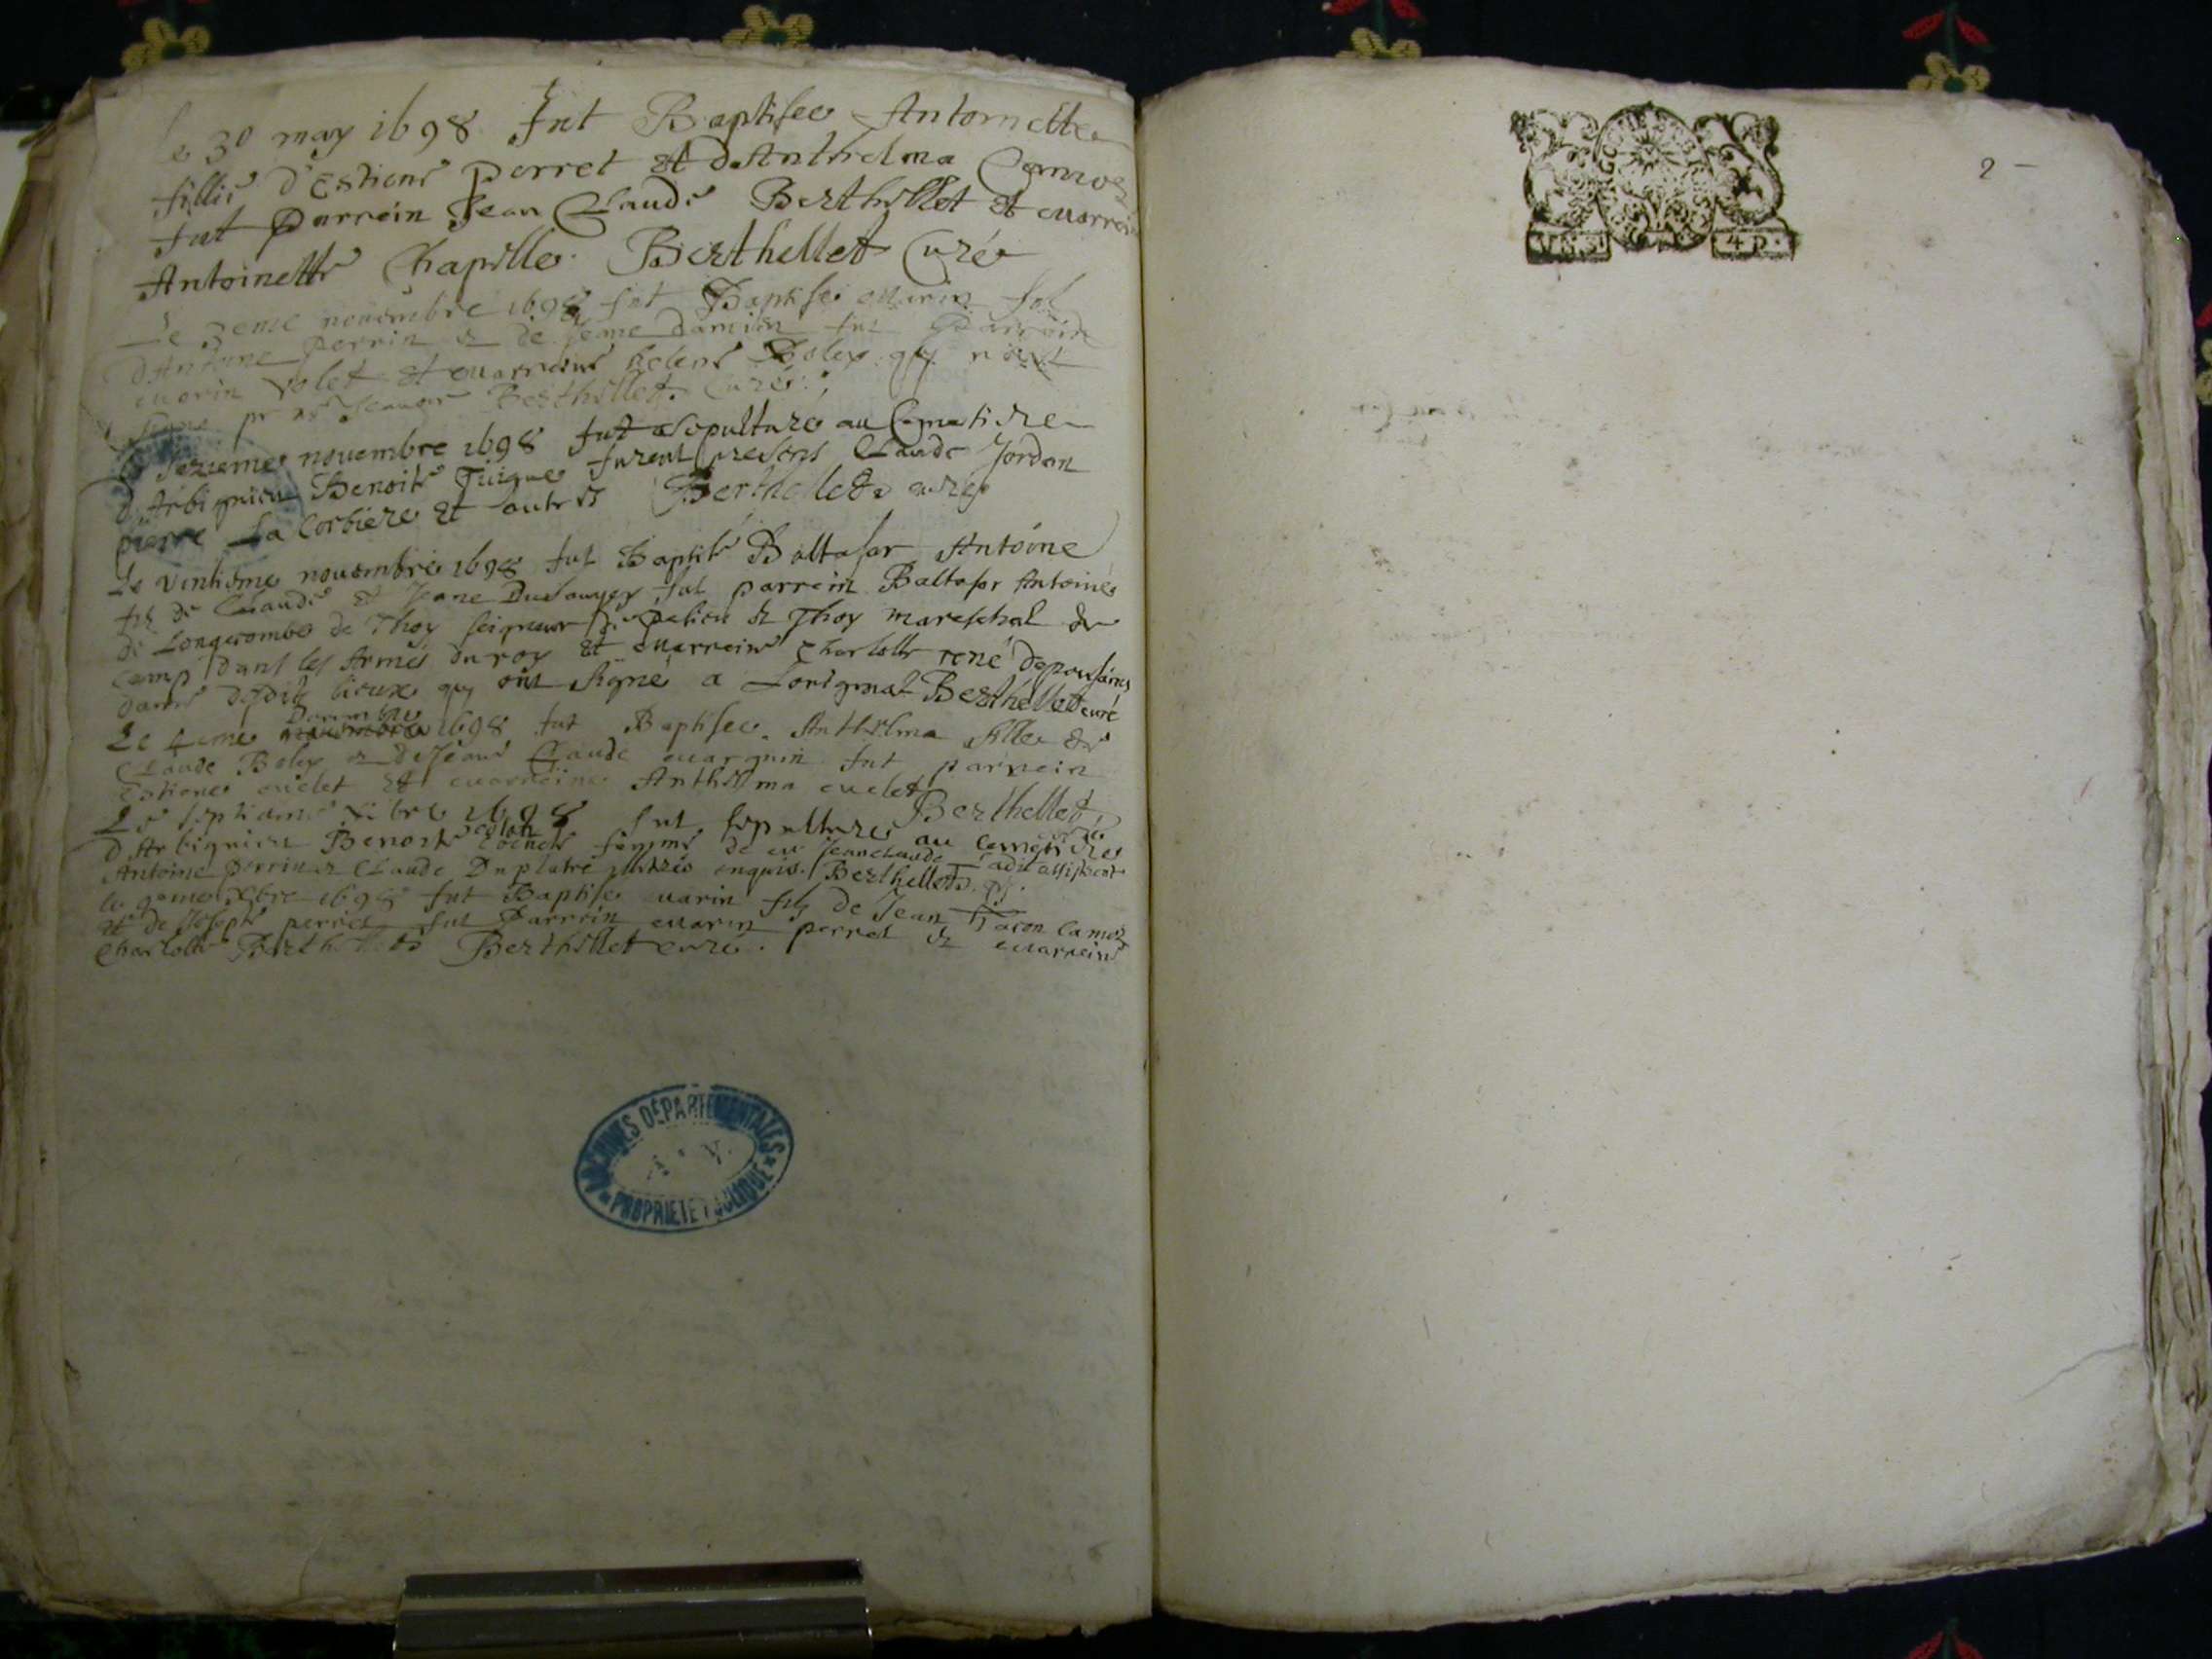 le 30 may 1698 fut Baptisee Antoinette
fillie d'Estiene perret et d'Anthelma Camoz
fut parrein Jean Claude Berthellet et marrein
Antoinette Chapelle Berthellet Curé
Le 3eme novembre 1698 fut Baptise marin fils
d'Antoine perrin et de Jeane damien fut parrein
marin volet et marreine helene Boley qui n'ont
signe pr ne scavoir Berthellet Curé
novembre 1698 fut sepulturé au Cemetiere
d'Arbignieu Benoite furent presens Claude Jordan
pierre La Corbiere et autres Berthellet curé
Le ventieme novembre 1698 fut Baptisé Baltasar Antoine
fils de Claude et Jeane fut parrein Baltasar Antoine
de Longecombe de Thoy seigneur de et Thoy mareschal de
camp dans les Armés du roy et marreine Charlotte rené
dame desdits lieux qui ont signé a Loriginal Berthellet curé
Decembre
Le 4eme novembre 1698 fut Baptisee Anthelma fille de
Claude Boley et de Jeane Claude marguin fut parrein
Estiene melet et marreine Anthelma melet
Berthellet curé
Le septieme Xbre 1698 fut sepulturee au cemetiere
d'Arbignieu Benoite femme de Jean Claude assistant
Antoine perrin et Claude Duplatre enquis Berthellet
le 9eme Xbre 1698 fut Baptise marin fils de Jean camoz
et de Josephte perret fut parrein marin perret et marreine
Charlotte Berthellet Berthellet curé
ARCHIVES DÉPARTEMENTALES
PROPRIETE PUBLIQUE
2
4 D.